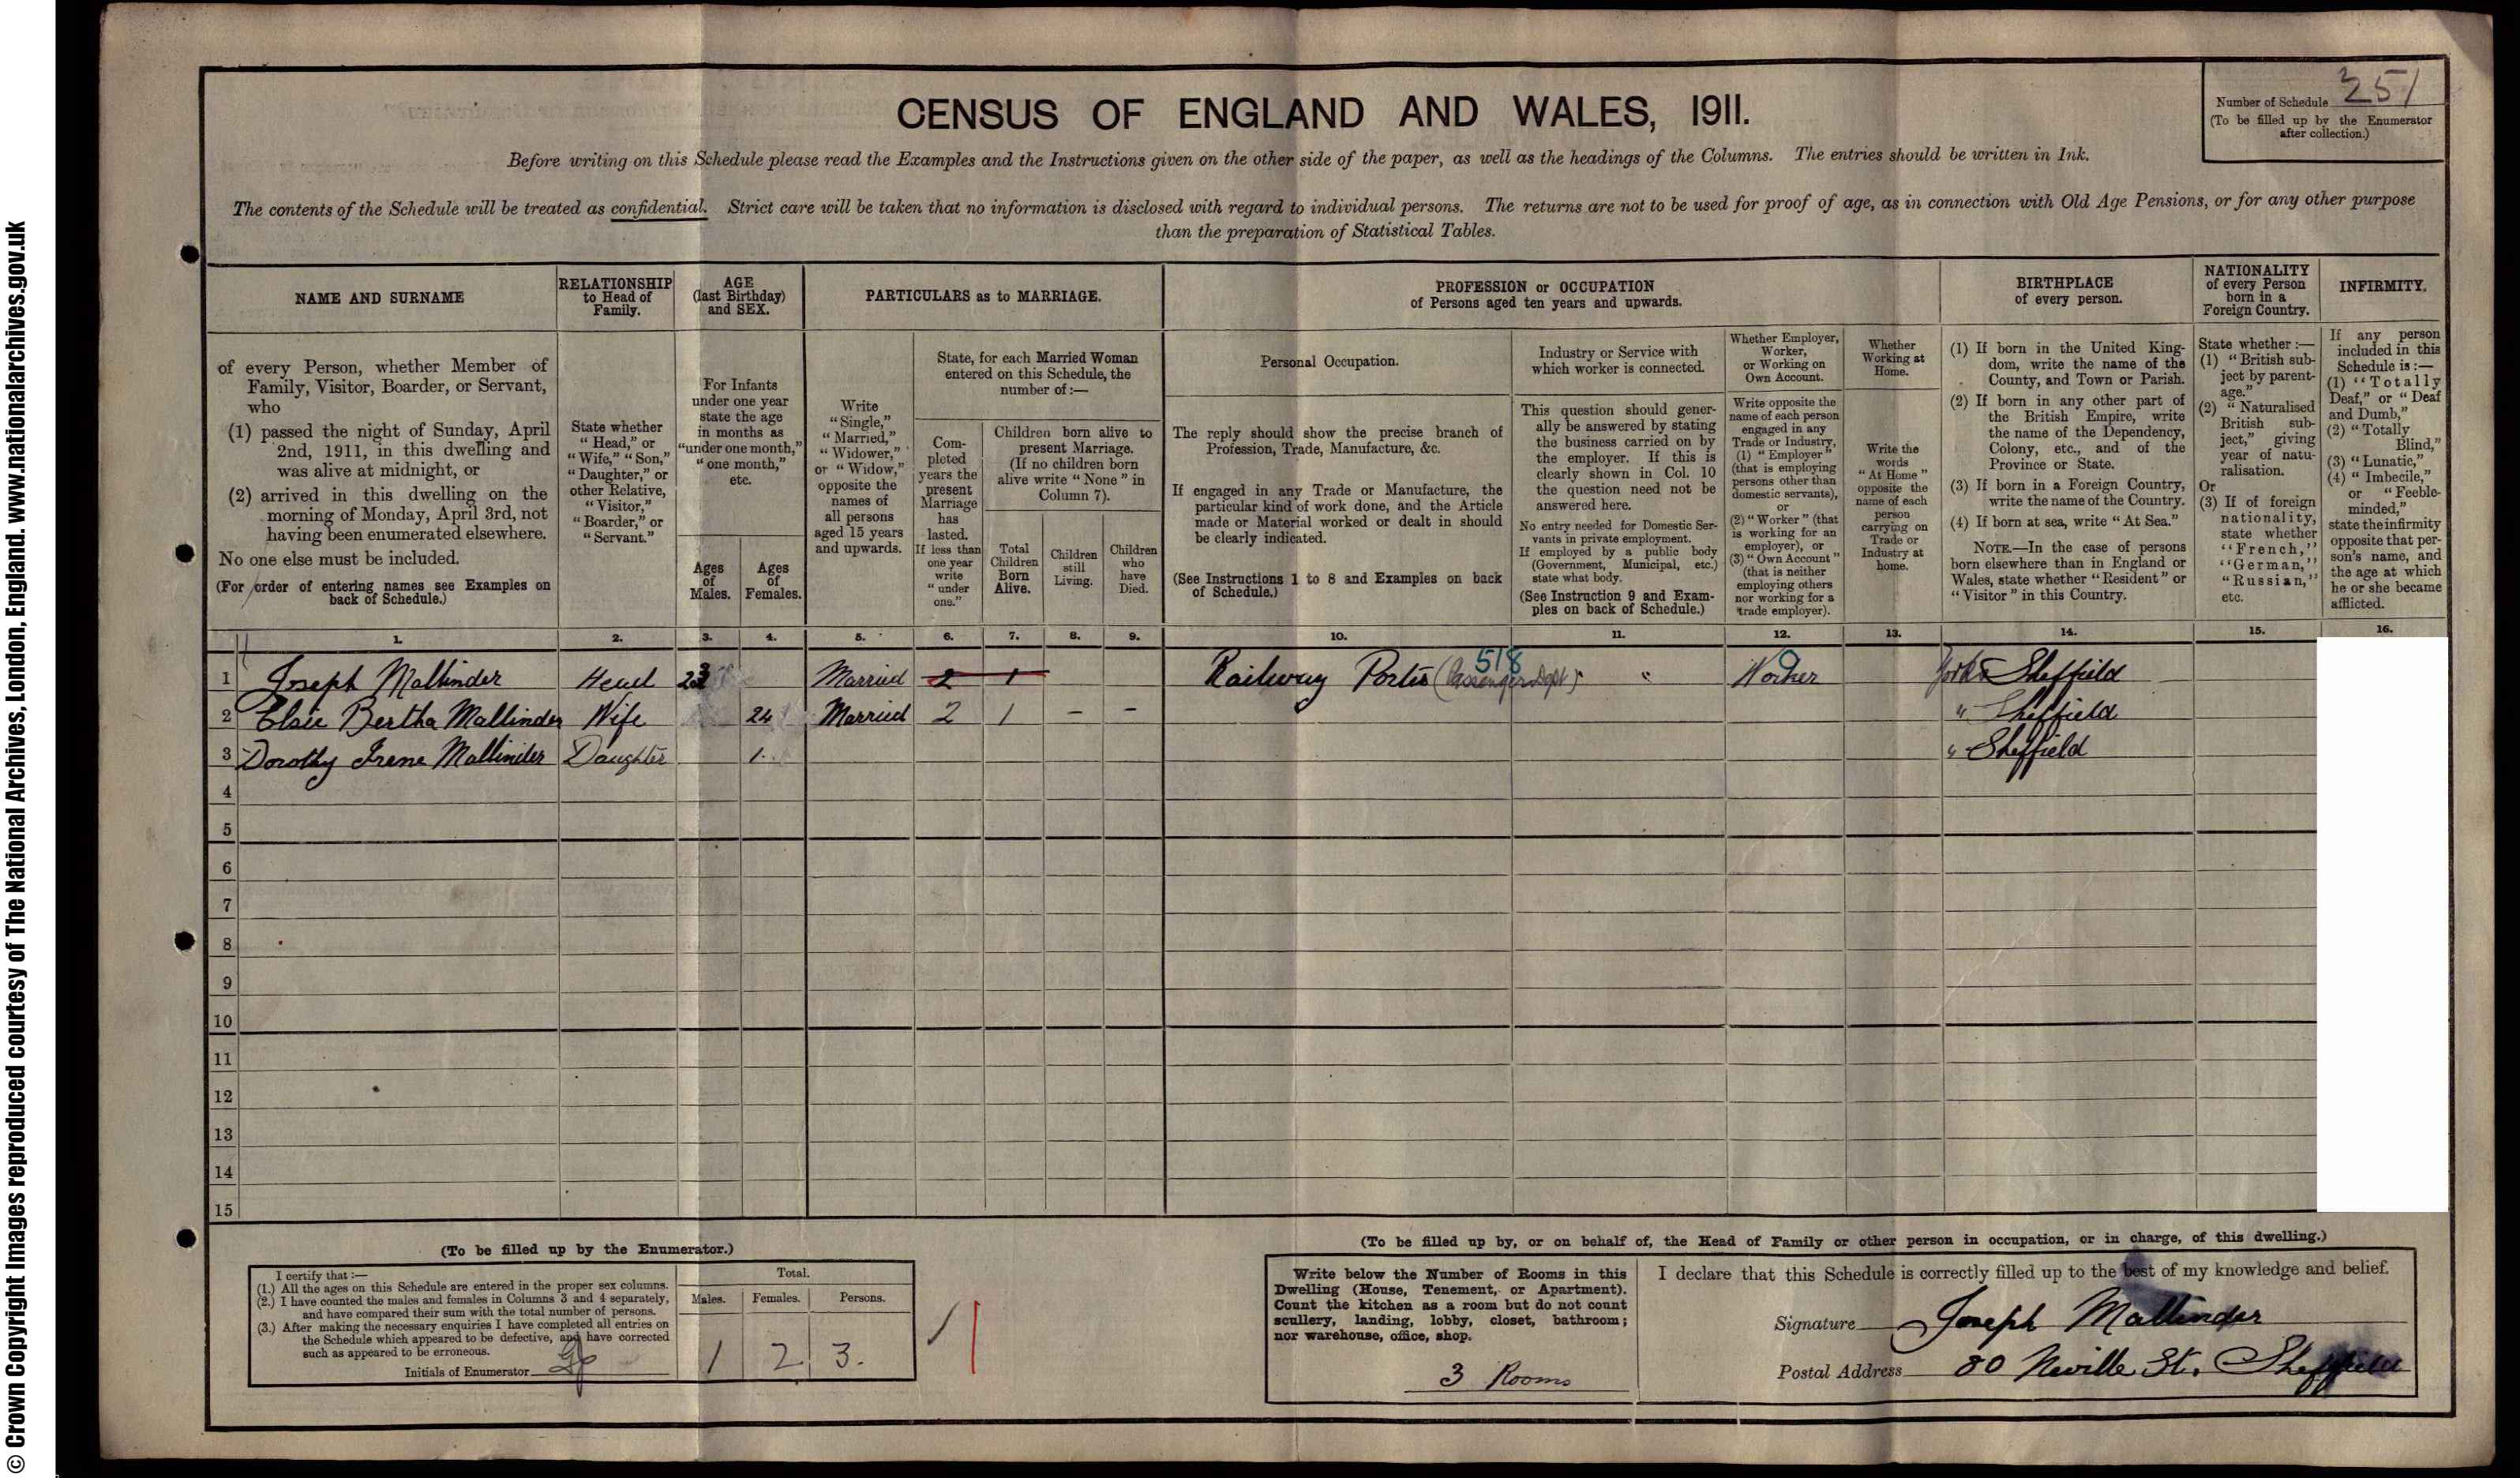 © Crown Copyright Images reproduced courtesy of The National Archives, London, England. www.nationalarchives.gov.uk
Number of Schedule 251
(To be filled up by the Enumerator
after collection.)
CENSUS OF ENGLAND AND WALES, 1911.
Before writing on this Schedule please read the Examples and the Instructions given on the other side of the paper, as well as the headings of the Columns. The entries should be written in Ink.
The contents of the Schedule will be treated as confidential. Strict care will be taken that no information is disclosed with regard to individual persons. The returns are not to be used for proof of age, as in connection with Old Age Pensions, or for any other purpose
than the preparation of Statistical Tables.
NAME AND SURNAME
of every Person, whether Member of
Family, Visitor, Boarder, or Servant,
who
(1) passed the night of Sunday, April
2nd, 1911, in this dwelling and
was alive at midnight, or
(2) arrived in this dwelling on the
morning of Monday, April 3rd, not
having been enumerated elsewhere.
No one else must be included.
(For order of entering names see Examples on
back of Schedule.)
RELATIONSHIP
to Head of
Family.
State whether
"Head," or
"Wife," "Son,"
"Daughter," or
other Relative,
"Visitor,"
"Boarder," or
"Servant."
AGE
(last Birthday)
and SEX.
For Infants
under one year
state the age
in months as
"under one month,"
"one month,"
etc.
Ages
of
Males.
Ages
of
Females.
PARTICULARS as to MARRIAGE.
Write
"Single,"
"Married,"
"Widower,"
or "Widow,"
opposite the
names of
all persons
aged 15 years
and upwards.
State, for each Married Woman
entered on this Schedule, the
number of:—
Com-
pleted
years the
present
Marriage
has
lasted.
If less than
one year
write
"under
one."
Children born alive to
present Marriage.
(If no children born
alive write "None" in
Column 7).
Total
Children
Born
Alive.
Children
still
Living.
Children
who
have
Died.
PROFESSION or OCCUPATION
of Persons aged ten years and upwards.
Personal Occupation.
The reply should show the precise branch of
Profession, Trade, Manufacture, &c.
If engaged in any Trade or Manufacture, the
particular kind of work done, and the Article
made or Material worked or dealt in should
be clearly indicated.
(See Instructions 1 to 8 and Examples on back
of Schedule.)
Industry or Service with
which worker is connected.
This question should gener-
ally be answered by stating
the business carried on by
the employer. If this is
clearly shown in Col. 10
the question need not be
answered here.
No entry needed for Domestic Ser-
vants in private employment.
If employed by a public body
(Government, Municipal, etc.)
state what body.
(See Instruction 9 and Exam-
ples on back of Schedule.)
Whether Employer,
Worker,
or Working on
Own Account.
Write opposite the
name of each person
engaged in any
Trade or Industry,
(1) "Employer"
(that is employing
persons other than
domestic servants),
or
(2) "Worker" (that
is working for an
employer), or
(3) "Own Account"
(that is neither
employing others
nor working for a
trade employer).
Whether
Working at
Home.
Write the
words
"At Home"
opposite the
name of each
person
carrying on
Trade or
Industry at
home.
BIRTHPLACE
of every person.
(1) If born in the United King-
dom, write the name of the
County, and Town or Parish.
(2) If born in any other part of
the British Empire, write
the name of the Dependency,
Colony, etc., and of the
Province or State.
(3) If born in a Foreign Country,
write the name of the Country.
(4) If born at sea, write "At Sea."
NOTE.—In the case of persons
born elsewhere than in England or
Wales, state whether "Resident" or
"Visitor" in this Country.
NATIONALITY
of every Person
born in a
Foreign Country.
State whether:—
(1) "British sub-
ject by parent-
age."
(2) "Naturalised
British sub-
ject," giving
year of natu-
ralisation.
Or
(3) If of foreign
nationality,
state whether
"French,"
"German,"
"Russian,"
etc.
INFIRMITY.
If any person
included in this
Schedule is:—
(1) "Totally
Deaf," or "Deaf
and Dumb,"
(2) "Totally
Blind,"
(3) "Lunatic,"
(4) "Imbecile,"
or "Feeble-
minded,"
state the infirmity
opposite that per-
son's name, and
the age at which
he or she became
afflicted.
1. 2. 3. 4. 5. 6. 7. 8. 9. 10. 11. 12. 13. 14. 15. 16.
518
1 Joseph Mallinder Head 23 Married 2 1 Railway Porter (Passenger Dept) " Worker Yorks Sheffield
2 Elsie Bertha Mallinder Wife 24 Married 2 1 – – " Sheffield
3 Dorothy Irene Mallinder Daughter 1 " Sheffield
4
5
6
7
8
9
10
11
12
13
14
15
(To be filled up by the Enumerator.)
I certify that:—
(1.) All the ages on this Schedule are entered in the proper sex columns.
(2.) I have counted the males and females in Columns 3 and 4 separately,
and have compared their sum with the total number of persons.
(3.) After making the necessary enquiries I have completed all entries on
the Schedule which appeared to be defective, and have corrected
such as appeared to be erroneous.
Initials of Enumerator
Total.
Males. Females. Persons.
1 2 3.
(To be filled up by, or on behalf of, the Head of Family or other person in occupation, or in charge, of this dwelling.)
Write below the Number of Rooms in this
Dwelling (House, Tenement, or Apartment).
Count the kitchen as a room but do not count
scullery, landing, lobby, closet, bathroom;
nor warehouse, office, shop.
3 Rooms
I declare that this Schedule is correctly filled up to the best of my knowledge and belief.
Signature Joseph Mallinder
Postal Address 80 Neville St. Sheffield